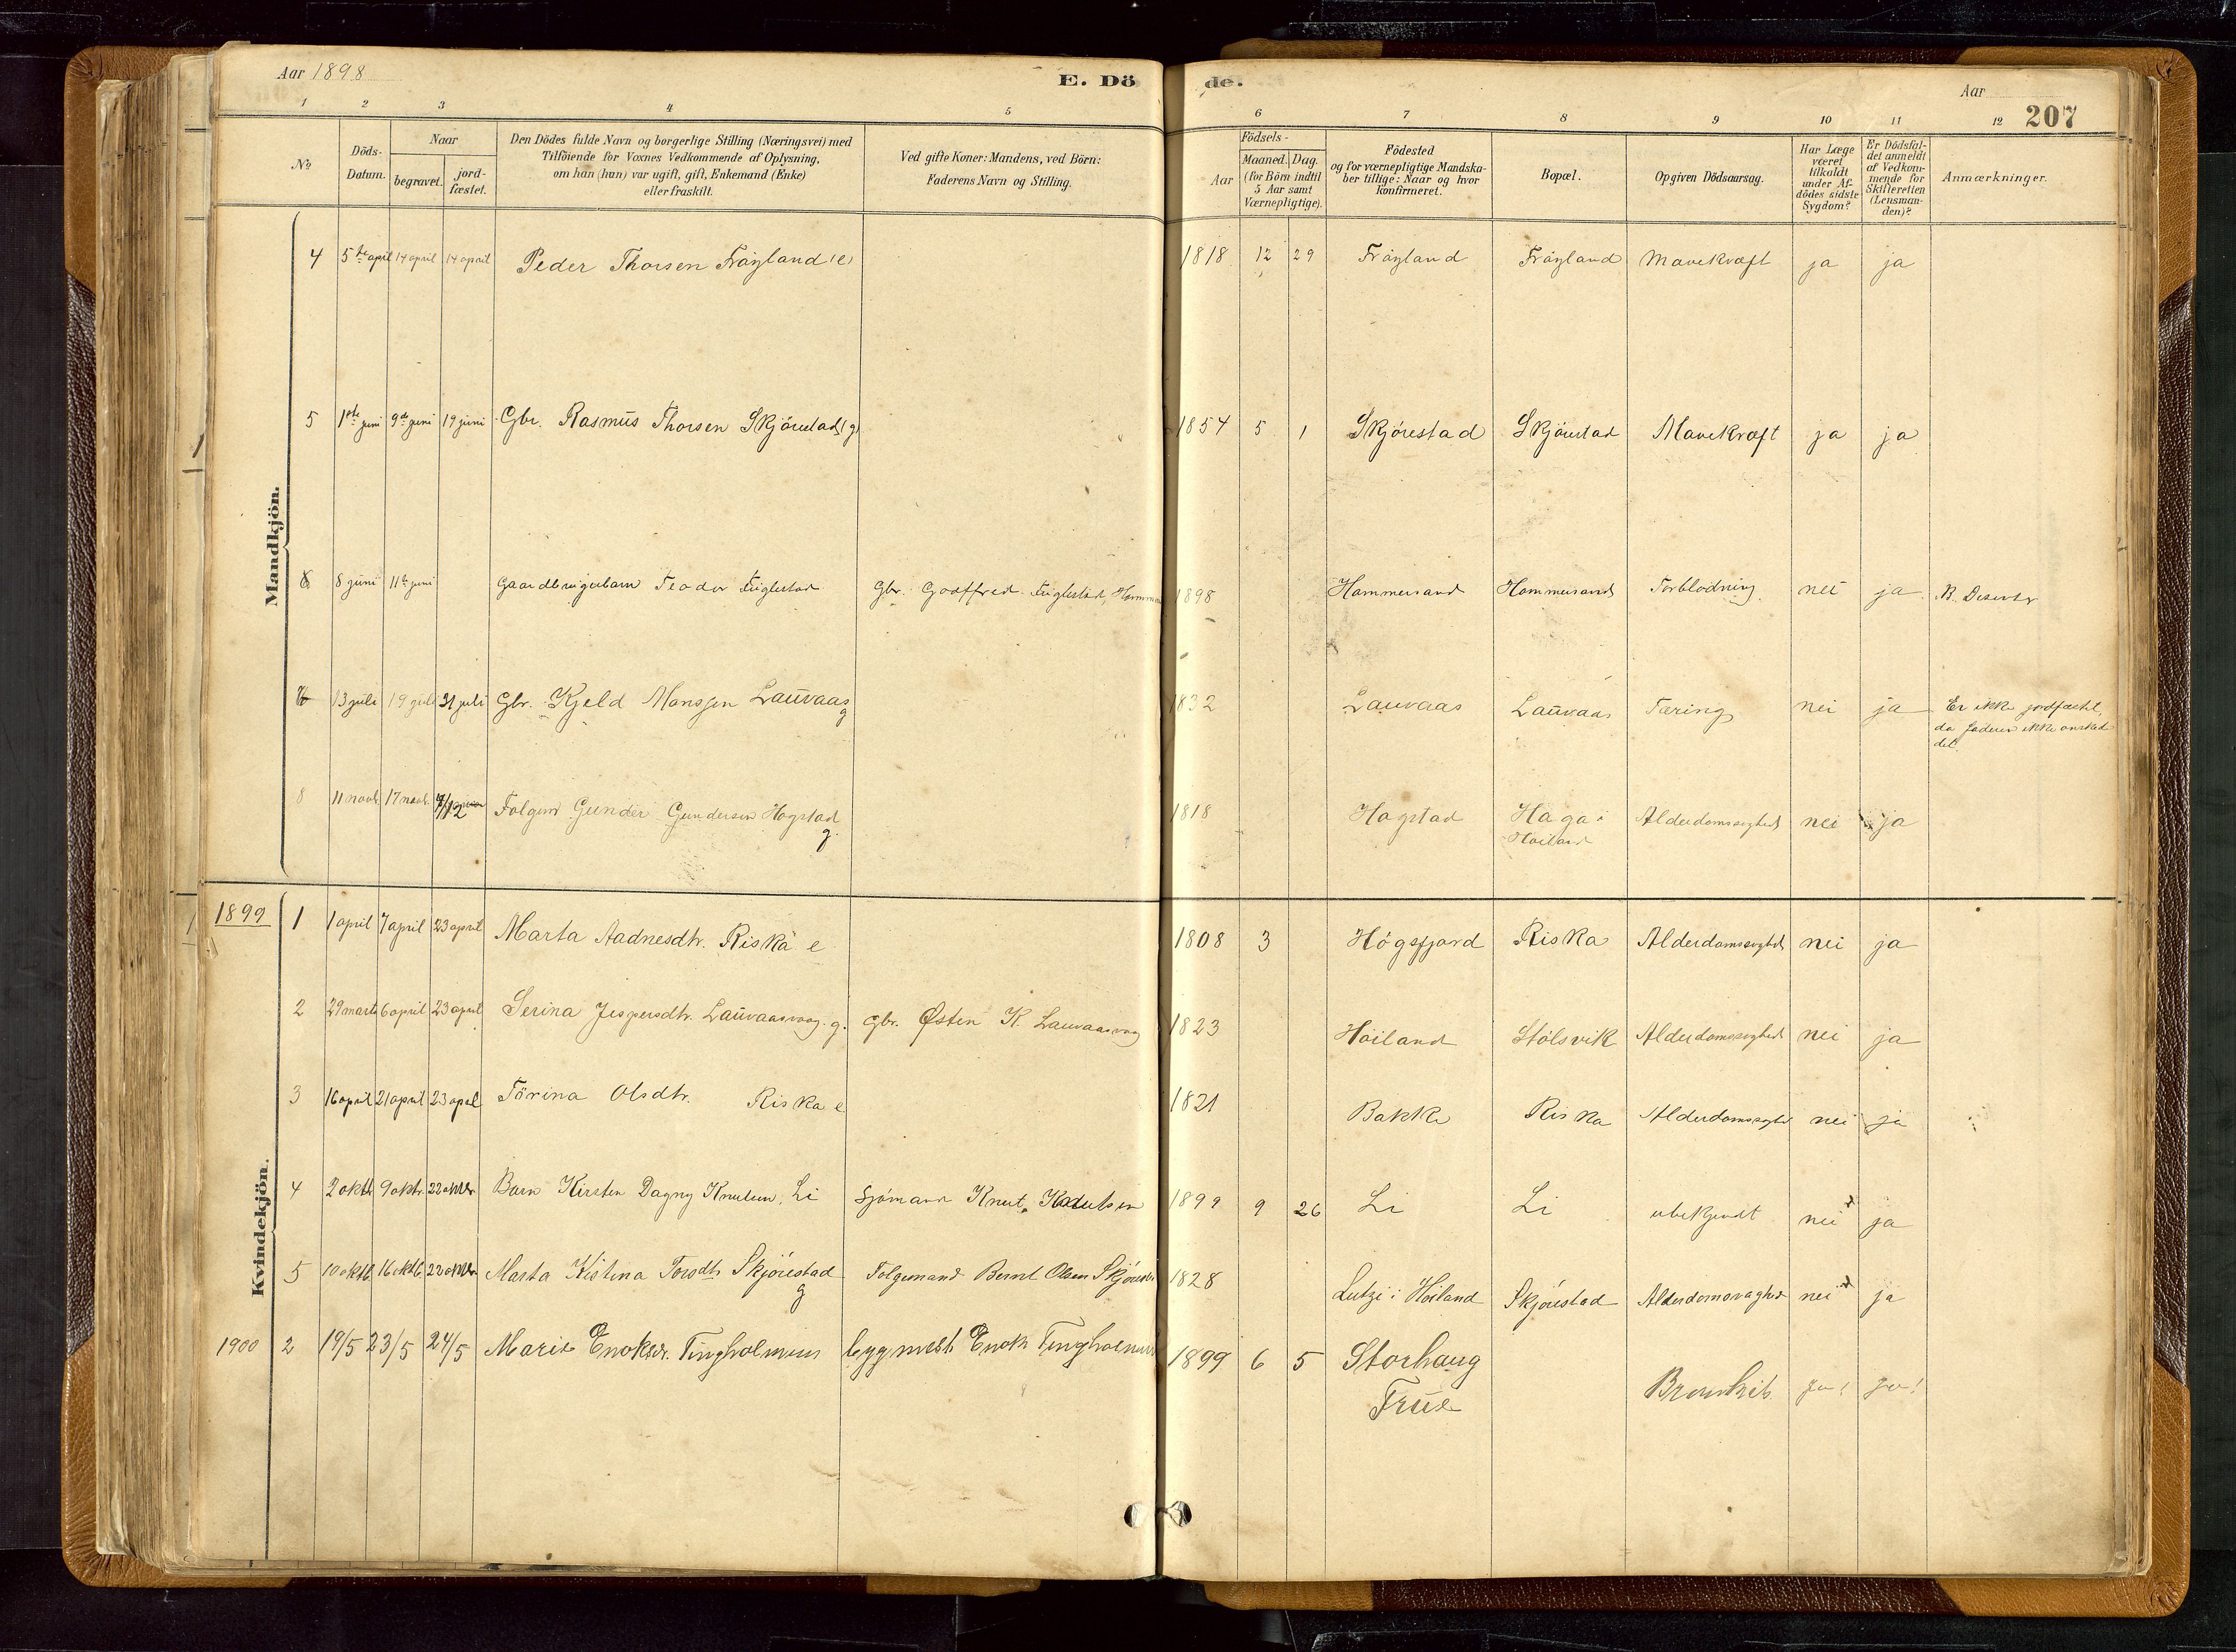 Aar 1898
E. Dö
de.
Aar
207
1 2 3 4 5 6 7 8 9 10 11 12
No
Döds-
Datum.
Naar
begravet.
jord-
fæstet.
Den Dödes fulde Navn og borgerlige Stilling (Næringsvei) med
Tilföiende for Voxnes Vedkommende af Oplysning,
om han (hun) var ugift, gift, Enkemand (Enke)
eller fraskilt.
Ved gifte Koner: Mandens, ved Börn:
Faderens Navn og Stilling.
Födsels-
Aar
Maaned. Dag.
(for Börn indtil
5 Aar samt
Værnepligtige).
Födested
og for værnepligtige Mandska-
ber tillige: Naar og hvor
konfirmeret.
Bopæl.
Opgiven Dödsaarsag.
Har Læge
været
tilkaldt
under Af-
dödes sidste
Sygdom?
Er Dödsfal-
det anmeldt
af Vedkom-
mende for
Skifteretten
(Lensman-
den)?
Anmærkninger.
Mandkjön.
4 5te april 14 april 14 april Peder Thorsen Fröyland (e) 1818 12 29 Fröyland Fröyland Mavekræft ja ja
5 1ste juni 9de juni 19 juni Gbr. Rasmus Thorsen Skjörestad (g) 1854 5 1 Skjörestad Skjörestad Mavekræft ja ja
6 8 juni 11te juni Gaardbrugerbarn Teodor Fuglestad Gbr. Godffred Fuglestad, 1898 Hammersand Hammersand Forblödning nei ja
13 juli 19 juli 31 juli Gbr. Kjeld Monssen Lauvaas g 1832 Lauvaas Lauvaas Tæring nei ja Er ikke jordfæstet,
da faderen ikke önsked
det.
8 11 novb. 17 novb. 4/12 Folgem. Gunder Gundersen Hogstad
g. 1818 Hogstad Haga i
Höiland Alderdomssvaghed nei ja
Kvindekjön.
1899 1 1 april 7 april 23 april Marta Aadnesdtr. Riska e 1808 3 Högsfjord Riska Alderdomssvaghed nei ja
2 29 marts 6 april 23 april Serina Jespersdtr. Lauvaasvaag. g. Gbr. Østen K. Lauvaasvaag 1823 Höiland Stölsvik Alderdomssvaghed nei ja
3 16 april 21 april 23 april Törina Olsdtr. Riska e 1821 Bakke Riska Alderdomssvaghed nei ja
4 2 oktb. 9 oktb. 22 oktbr. Barn Kirsten Dagny Knutsen, Li Sjömand Knut Knutsen 1899 9 26 Li Li ubekjendt nei ja
5 10 oktb. 16 oktb. 22 oktbr. Marta Kistina Torsdtr. Skjörestad
g Folgemand Bernt Olsen Skjörestad 1828 Lutsi i Höiland Skjörestad Alderdomsvaghed nei ja
1900 2 19/5 23/5 24/5 Marie Enoksdr. Tingholmen byggmestr Enok Tingholmen 1899 6 5 Storhaug
Frue Bronkit. Ja! Ja!